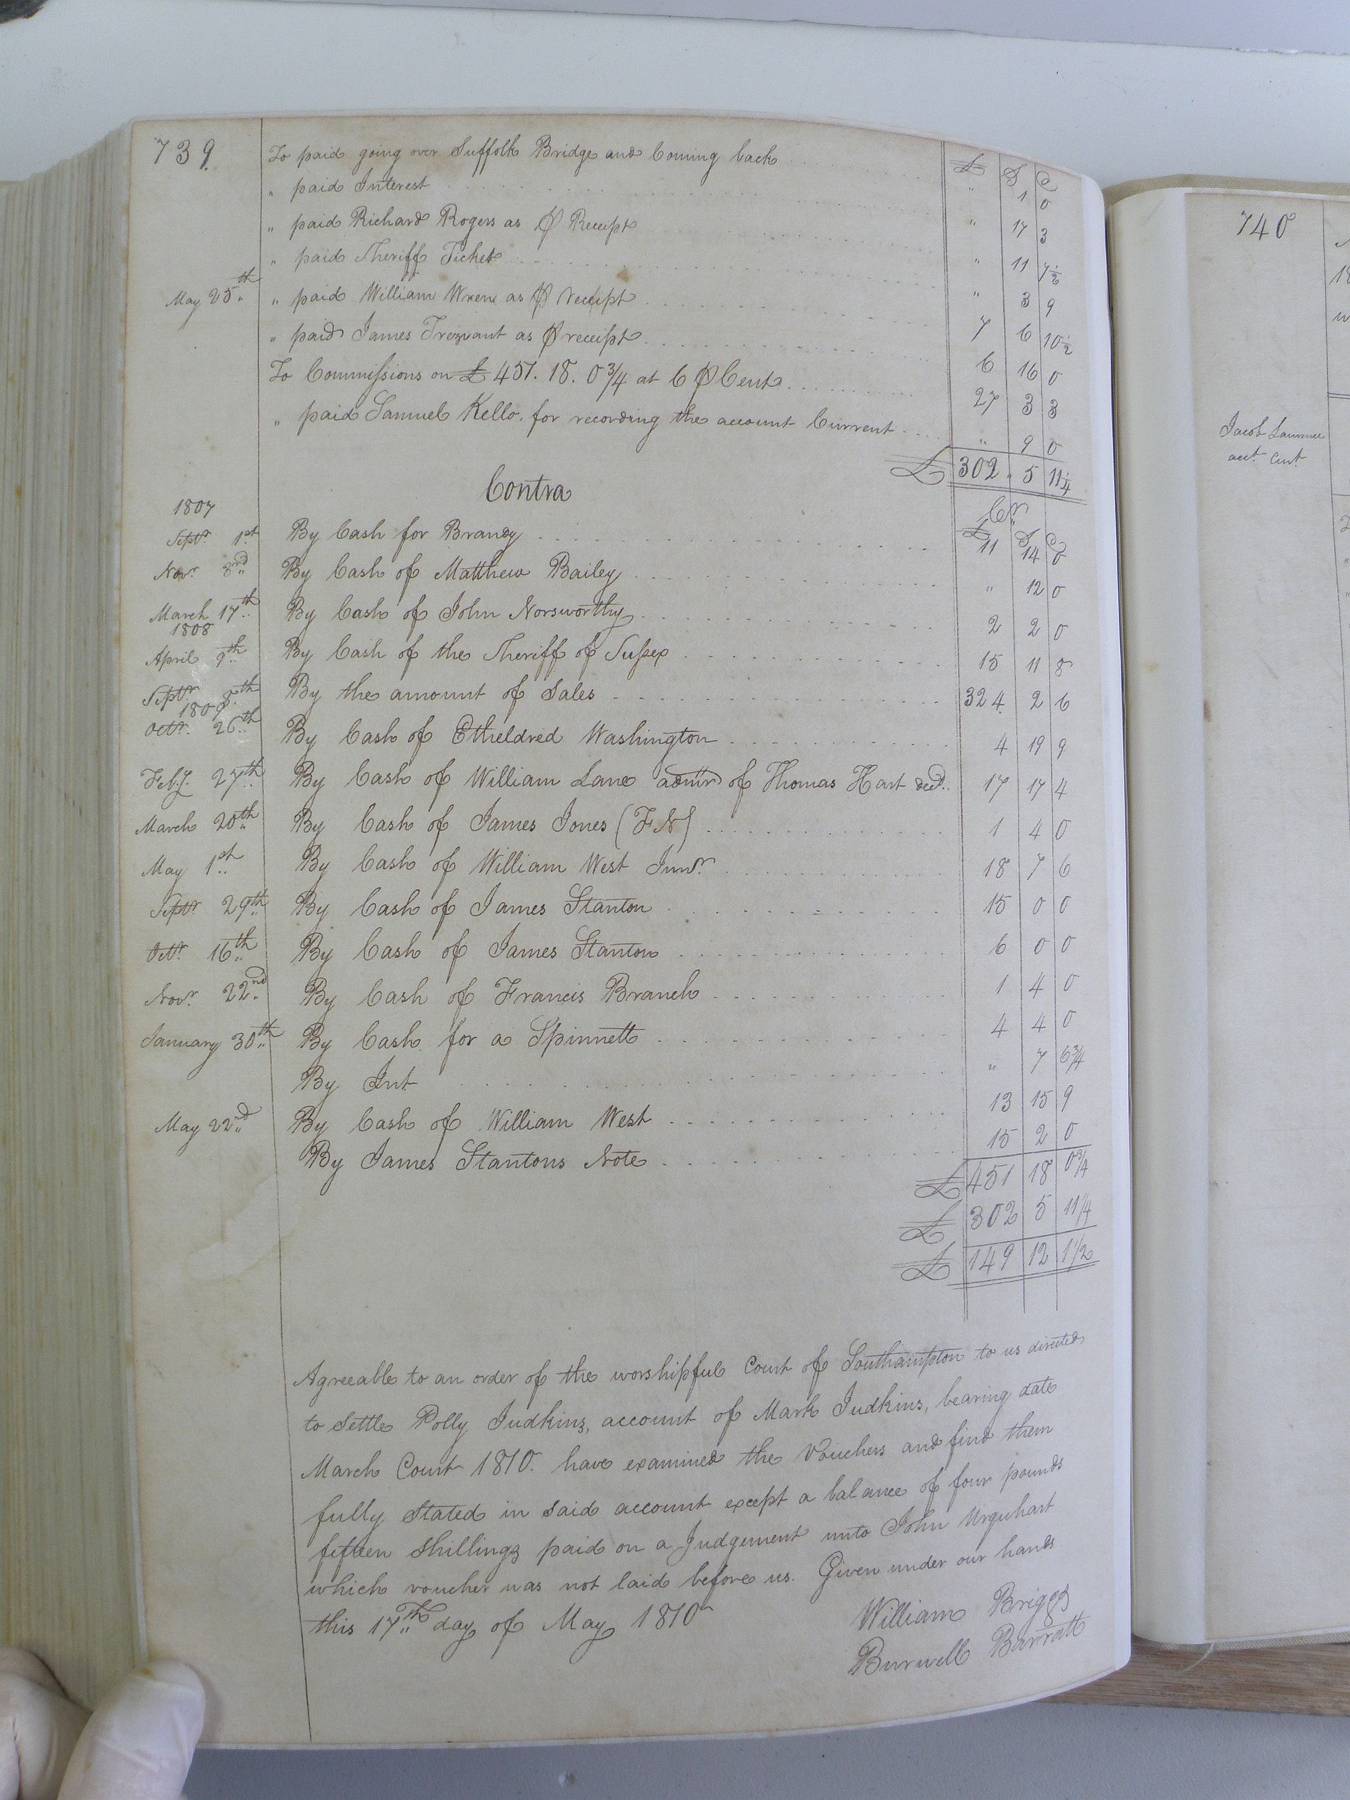 739.
£ S D
To paid going over Suffolk Bridge and Coming back " 1 0
" paid Interest " 17 3
" paid Richard Rogers as ⅌ Receipt " 11 7½
" paid Sheriff Ticket " 3 9
May 25th " paid William Wren as ⅌ receipt 7 6 10½
" paid James Trezvant as ⅌ receipt 6 16 0
To Commissions on £451. 18. 0¾ at 6 ⅌ Cent 27 3 3
" paid Samuel Kello. for recording the account Current " 9 0
£ 302 " 5 11¼
Contra Cr
1807 £ S D
Septr 1st By Cash for Brandy 11 14 0
Novr 3rd By Cash of Matthew Bailey " 12 0
March 17th By Cash of John Norsworthy 2 2 0
1808
April 9th By Cash of the Sheriff of Sussex 15 11 8
Septr 8th By the amount of Sales 324 2 6
1809
Octr 26th By Cash of Etheldred Washington 4 19 9
Feby. 27th By Cash of William Lane admr of Thomas Hart decd. 17 17 4
March 20th By Cash of James Jones (FN) 1 4 0
May 1st By Cash of William West Junr 18 7 6
Septr 29th By Cash of James Stanton 15 0 0
Octr 16th By Cash of James Stanton 6 0 0
Novr 22nd By Cash of Francis Branch 1 4 0
January 30th By Cash for a Spinnett 4 4 0
By Int " 7 6¾
May 22nd By Cash of William West 13 15 9
By James Stantons Note 15 2 0
£ 451 18 0¾
£ 302 5 11¼
£ 149 12 1½
Agreeable to an order of the worshipful Court of Southampton to us directed
to Settle Polly Judkins, account of Mark Judkins, bearing date
March Court 1810. have examined the Vouchers and find them
fully Stated in said account except a balance of four pounds
fifteen Shillings paid on a Judgement unto John Urquhart
which voucher was not laid before us. Given under our hands
this 17th day of May 1810
William Briggs
Burwell Barratt
740
18
Jacob
acct. Cut.